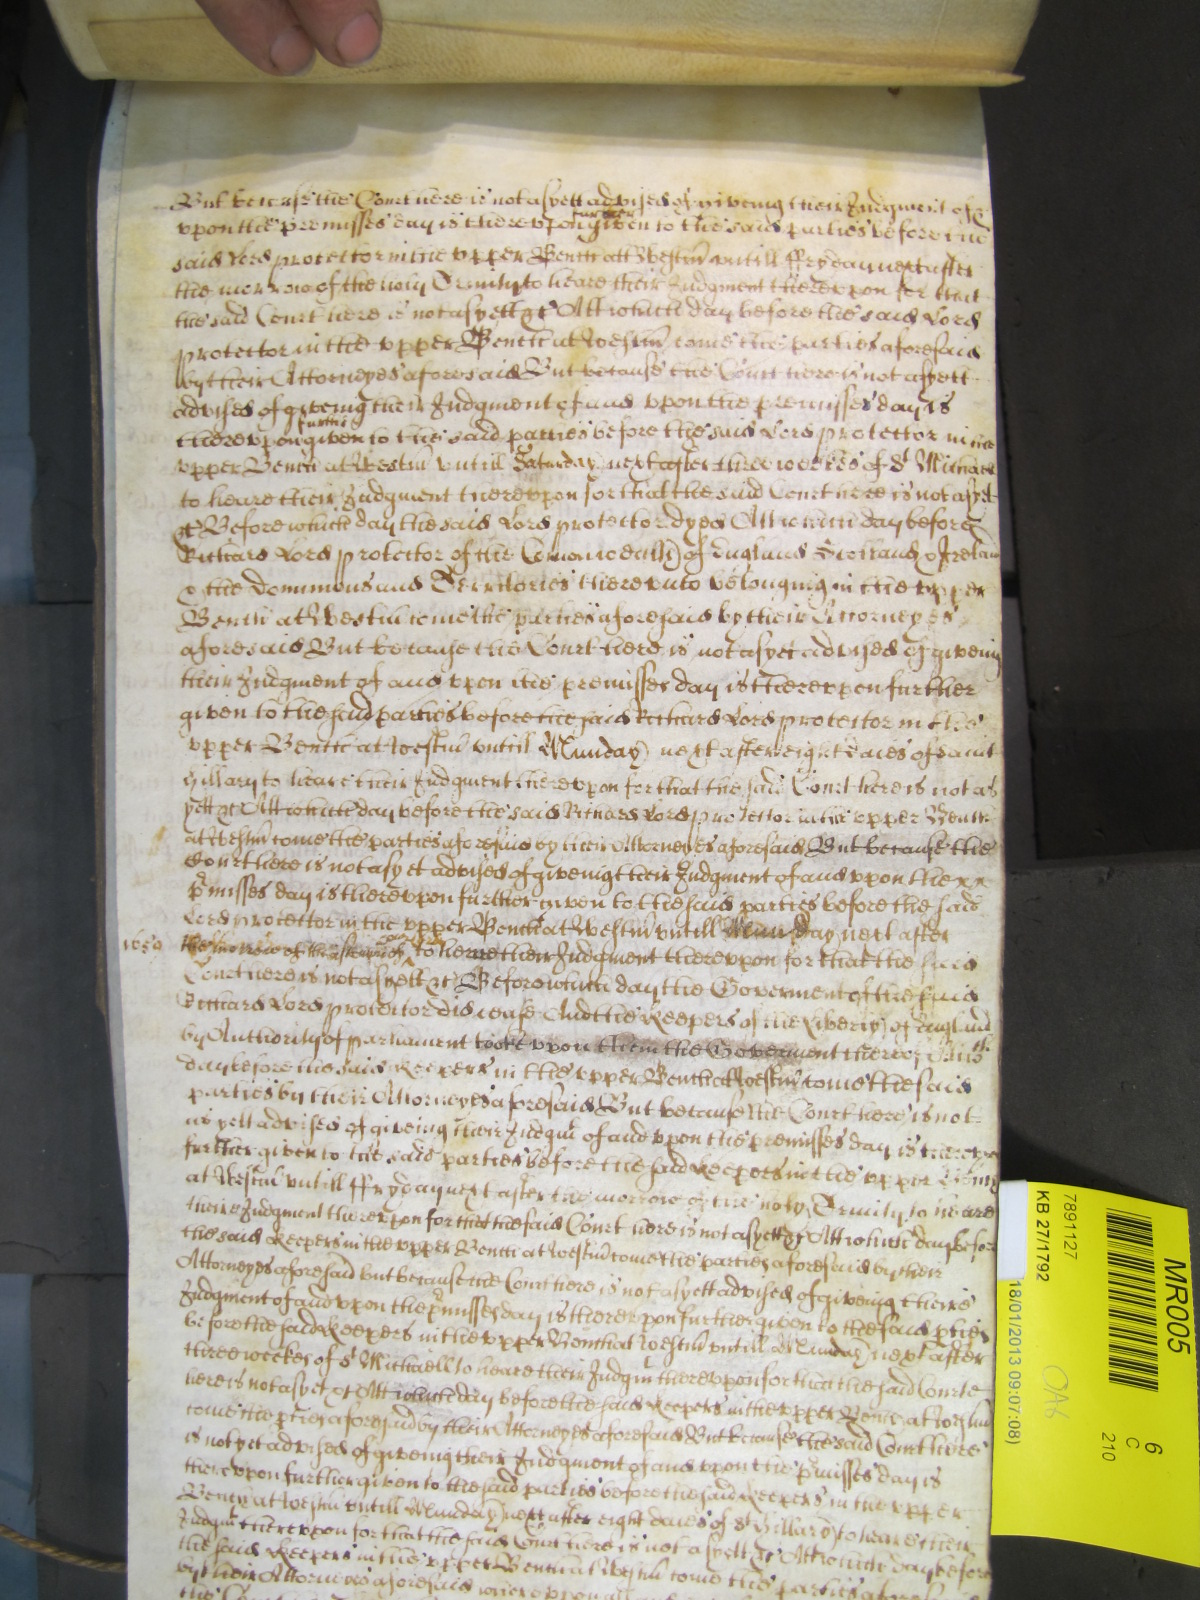 But because the Court here is not as yett advised of giveing their Judgment of &
upon the premisses day is thereupon further given to the said parties before the
said Lord protector in the upper Bench att Westm̄ untill ffryday next after
the morrow of the holy Trinity to heare their Judgment thereupon for that
the said Court here is not as yett &c Att which day before the said Lord
protector in the upper Bench at Westm̄ come the parties aforesaid
by their Attorneyes aforesaid But because the Court here is not as yett
advised of giveing their Judgment of and upon the premisses day is
thereupon further given to the said parties before the said Lord protector in the
upper Bench at Westm̄ untill Saturday next after three weekes of St Michael
to heare their Judgment thereupon for that the said Court here is not as yet
&c Before which day the said Lord protector dyed Att which day before
Richard Lord protector of the Comonwealth of England Scotland & Ireland
& the Dominions and Territories thereunto belonging in the upper
Bench at Westm̄ come the parties aforesaid by their Attorneyes
aforesaid But because the Court here is not as yet advised of giveing
their Judgment of and upon the premisses day is thereupon further
given to the said parties before the said Richard Lord protector in the
upper Bench at Westm̄ untill Munday next after eight daies of saint
Hillary to heare their Judgment thereupon for that the said Court here is not as
yett &c Att which day before the said Richard Lord protector in the upper Bench
at Westm̄ come the parties aforesaid by their Attorneyes aforesaid But because the
Court here is not as yet advised of giveing their Judgment of and upon the
p̄misses day is thereupon further given to the said parties before the said
Lord protector in the upper Bench at Westm̄ untill Munday next after
the morrow of the to heare their Judgment thereupon for that the said
Court here is not as yett &c Before which day the Goverment of the said
Richard Lord protector did cease And the Keepers of the Liberty of England
by Authority of parliament tooke upon them the Goverment thereof Att which
day before the said Keepers in the upper Bench at Westm̄ come the said
parties by their Attorneyes aforesaid But because the Court here is not
as yett advised of giveing their Judgmt of and upon the premisses day is thereupon
further given to the said parties before the said Keepers in the upper Bench
at Westm̄ untill ffryday next after the morrow of the holy Trinity to heare
their Judgment thereupon for that the said Court here is not as yett &c Att which day before
the said Keepers in the upper Bench at Westm̄ come the parties aforesaid by their
Attorneyes aforesaid but because the Court here is not as yett advised of giveing theire
Judgment of and upon the p̄misses day is thereupon further given to the said pties
before the said Keepers in the upper Bench at Westm̄ untill Munday next after
three weekes of St Michaell to heare their Judgmt thereupon for that the said Courte
here is not as yet &c Att which day before the said Keepers in the upper Bench at Westm̄
come the pties aforesaid by their Attorneyes aforesaid But because the said Court here
is not yet advised of giveing their Judgment of and upon the p̄misses day is
thereupon further given to the said parties before the said Keepers in the upper
Bench at Westm̄ untill Munday next after eight daies of St Hillary to heare their
Judgmt thereupon for that the said Court here is not as yett &c Att which day before
the said Keepers in the upper Bench at Westm̄ come the parties aforesaid
by their Attorneyes aforesaid whereupon all
MR005
6
C
210
7891127
KB 27/1792
18/01/2013 09:07:08)